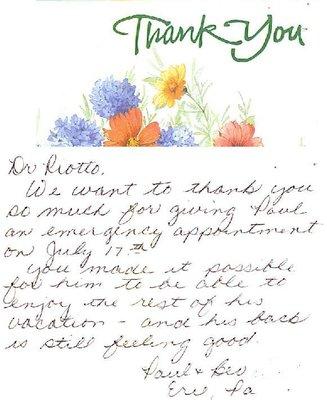 Thank You
Dr Riotto,
We want to thank you
so much for giving Paul
an emergency appointment
on July 17th
You made it possible
for him to be able to
enjoy the rest of his
vacation - and his back
is still feeling good.
Paul + Bev
Erie, Pa